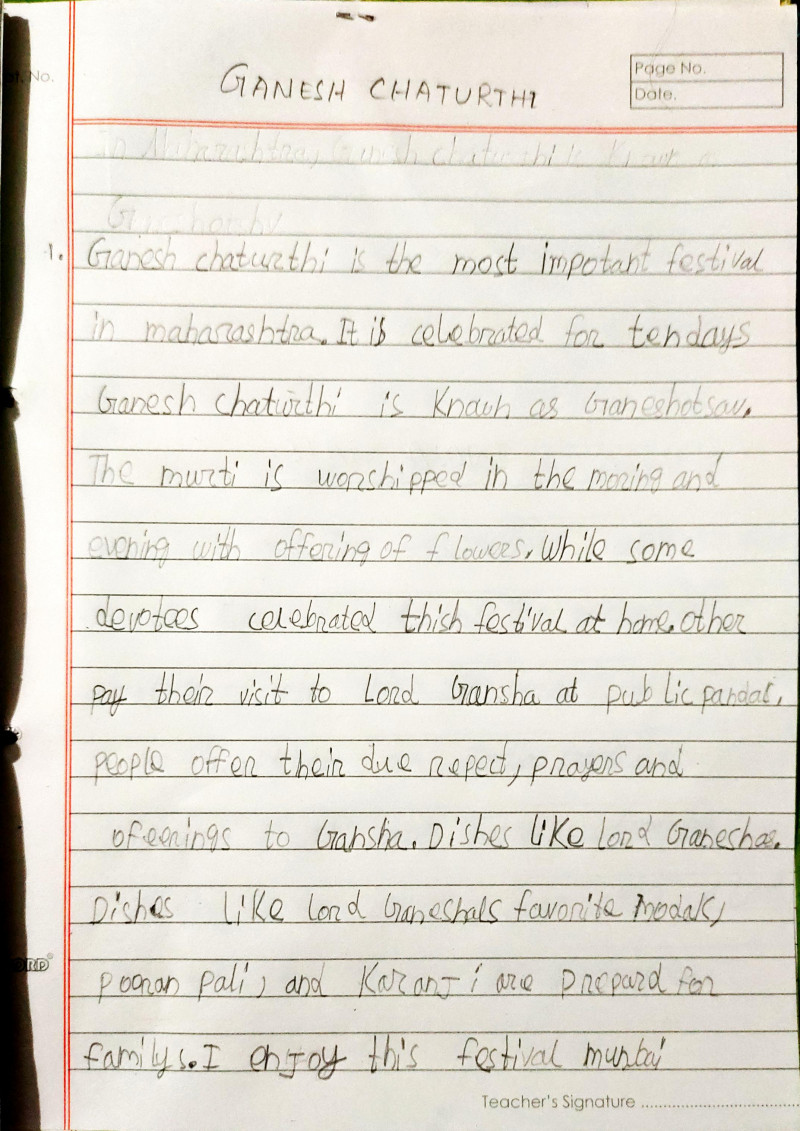 GANESH CHATURTHI
Page No.
Date.
No.
in Maharashtra, Ganesh chaturthi is Known as
1. Ganesh chaturthi is the most impotant festival
in maharashtra. It is celebrated for tendays
Ganesh chaturthi is Known as Ganeshotsav.
The murti is worshipped in the moring and
evening with offering of flowers. While some
devotees celebrated thish festival at home. other
pay their visit to Lord Gansha at public pandal.
people offer their due repect, prayers and
ofeerings to Gansha. Dishes like lord Ganeshas.
Dishes like lord Ganeshals favorite modak,
pooran pali, and Karanji are prepard for
familys. I enjoy this festival mumbai
Teacher's Signature